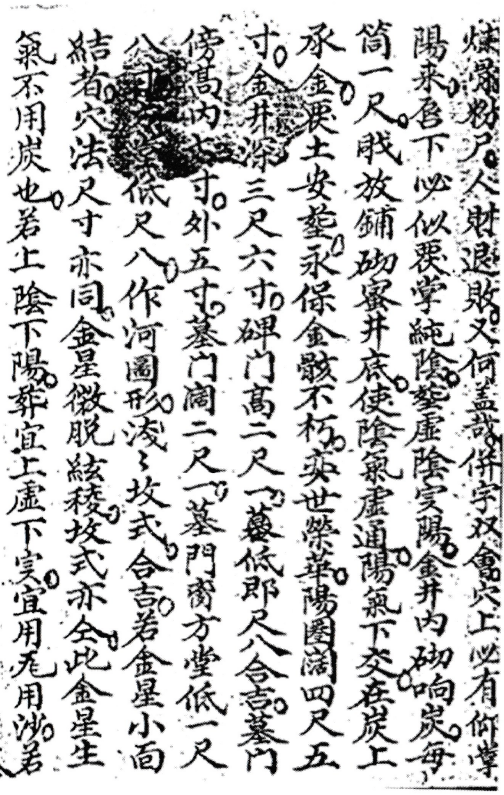 煉骨粉尸人財退敗又何益哉併字双會穴上必有仰掌
陽來唇下必似覆掌純陰塟虛陰实陽金井内砌响炭每
筒一尺戝放鋪砌蜜井底使陰氣虛通陽氣下交在炭上
承金覆土安塟永保金骸不朽奕世榮華陽圏濶四尺五
寸金井深三尺六寸碑门高二尺一墓低即尺八合吉墓门
傍高内七寸外五寸墓门濶二尺一墓門前方堂低一尺
八寸堂低尺八作河圖形淺々坟式合吉若金星小面
結者穴法尺寸亦同金星微脱絃稜坟式亦仝此金星生
氣不用炭也若上陰下陽葬宜上虛下実宜用尾用沙若